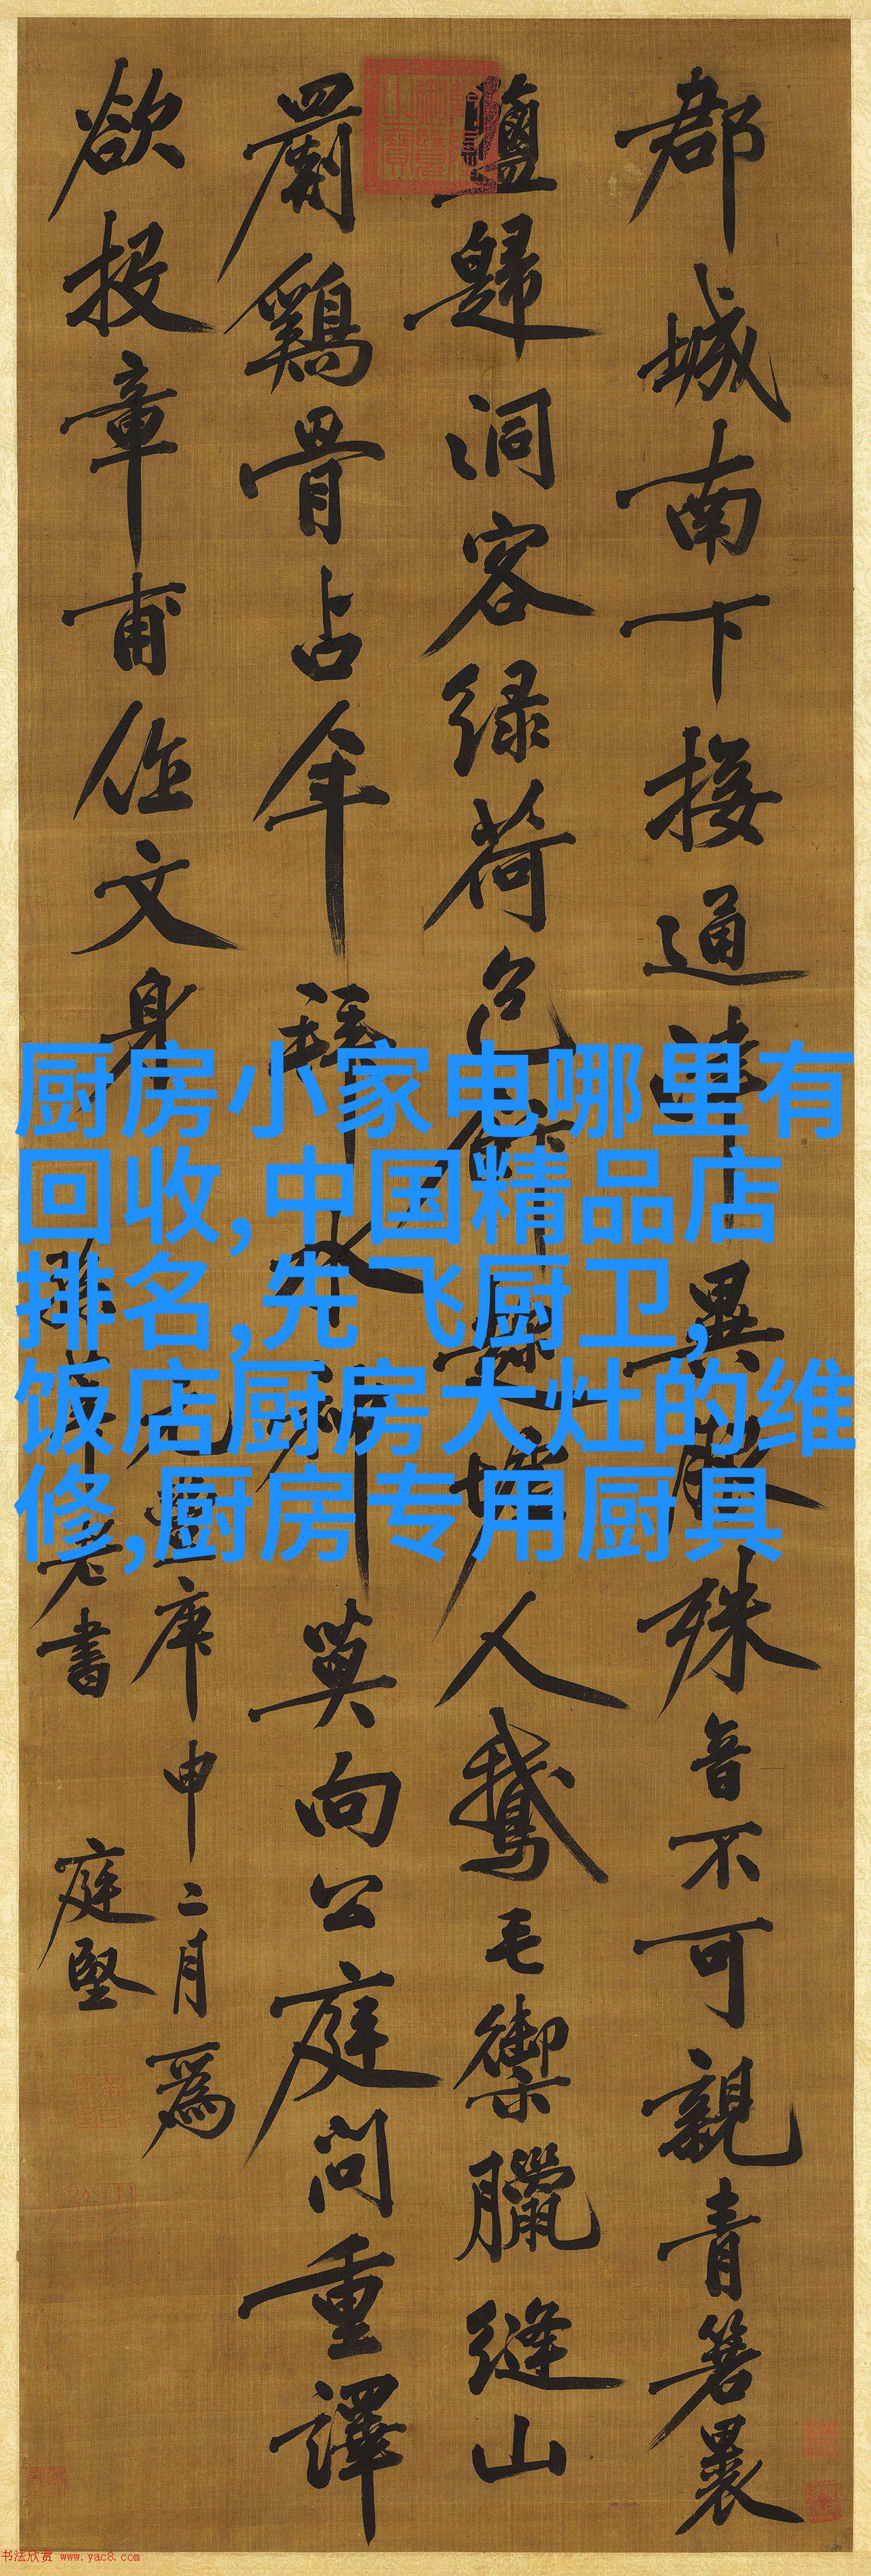 郡城南下接通津異服殊音不可親青箬裹
鹽歸洞客緑荷包飯人鵝毛禦臘縫山
罽鷄骨占年拜水神莫向公庭問重譯
欲投章甫作文身
元豐庚申二月爲
老書庭堅
厨房小家电哪里有
回收,中国精品店
排名,先飞厨卫,
饭店厨房大灶的维
修,厨房专用厨具
书法欣赏 www.yac8.com